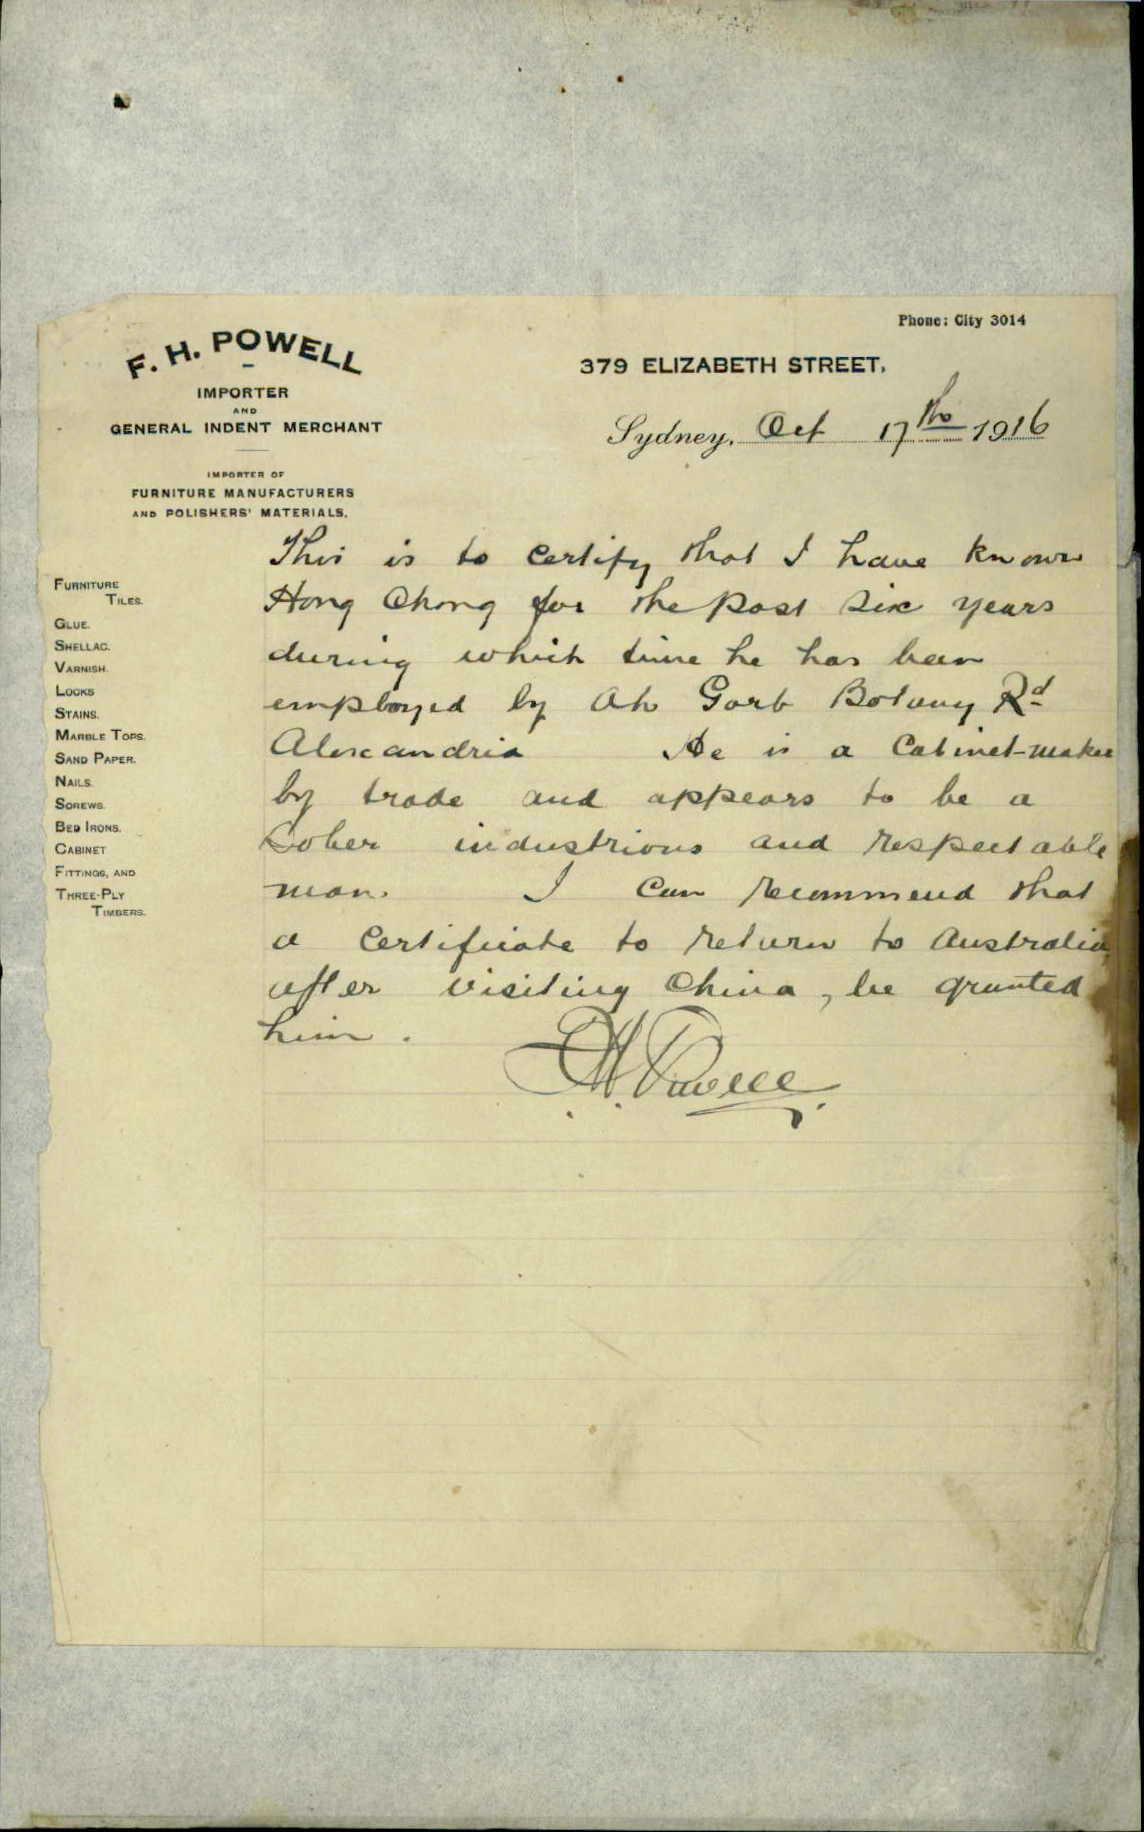 Phone: City 3014
F. H. POWELL
IMPORTER
AND
GENERAL INDENT MERCHANT
IMPORTER OF
FURNITURE MANUFACTURERS
AND POLISHERS' MATERIALS.
379 ELIZABETH STREET,
Sydney, Oct 17th 1916
FURNITURE
TILES.
GLUE.
SHELLAC.
VARNISH.
LOCKS
STAINS.
MARBLE TOPS.
SAND PAPER.
NAILS.
SCREWS.
BED IRONS.
CABINET
FITTINGS, AND
THREE-PLY
TIMBERS.
This is to certify that I have known
Hong Chong for the past six years
during which time he has been
employed by Ah Garb Botany Rd
Alexandria He is a Cabinet-maker
by trade and appears to be a
sober industrious and respectable
man. I can recommend that
a certificate to return to Australia,
after visiting China, be granted
him.
F. H. Powell